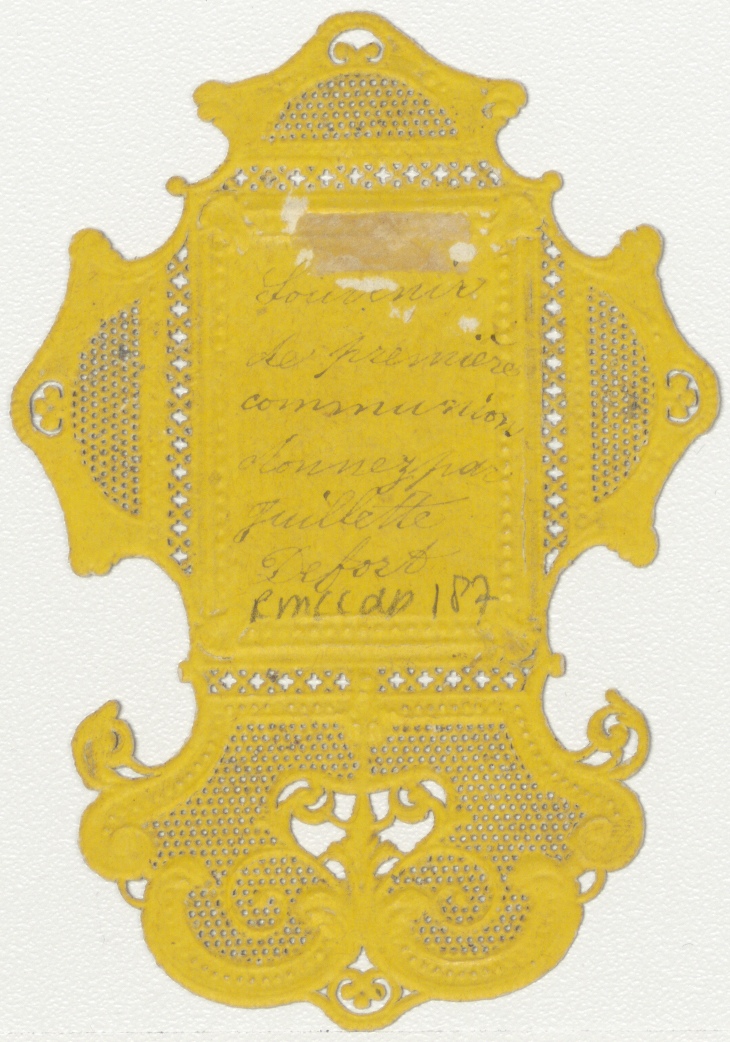 Souvenir
de premières
communion
donnez par
Juillette
Defort
RMCCDP 187